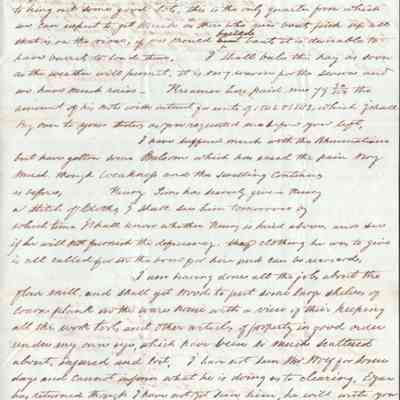 to bring out some good lots, this is the only quarter from which
we can expect to get
that is on the river, if you should build boats it is desirable to
have to load them. I shall bale this hay as soon
as the weather will permit, it is very warm for the season and
we have much rain. Kreamer has paid me 79 the
amount of his note with interest for which I shall
pay over to your as you requested me before you left,
I have suffered much with the Rheumatism
but have gotten some Balsom which has eased the pain very
much though weakness and the swelling continues
as before, Henry has given Henry
a stitch of cloths, I shall see him tomorrow by
which time I shall know whether Henry is hired above, and see
if he will not furnish the clothing he was to give
is all called for on the bond for hire and can be recovered,
I am having done all the jobs about the
flour mill, and shall get wood to put some large shelves of
plank in the ware house with a view of their keeping
all the work tools and other articles of property in good order
under my own eye, which have been so much scattered
about, injured and lost. I have not seen Mr. Wolf for some
days and cannot inform what he is doing as to clearing,
has returned though I have not yet seen him, he will write you